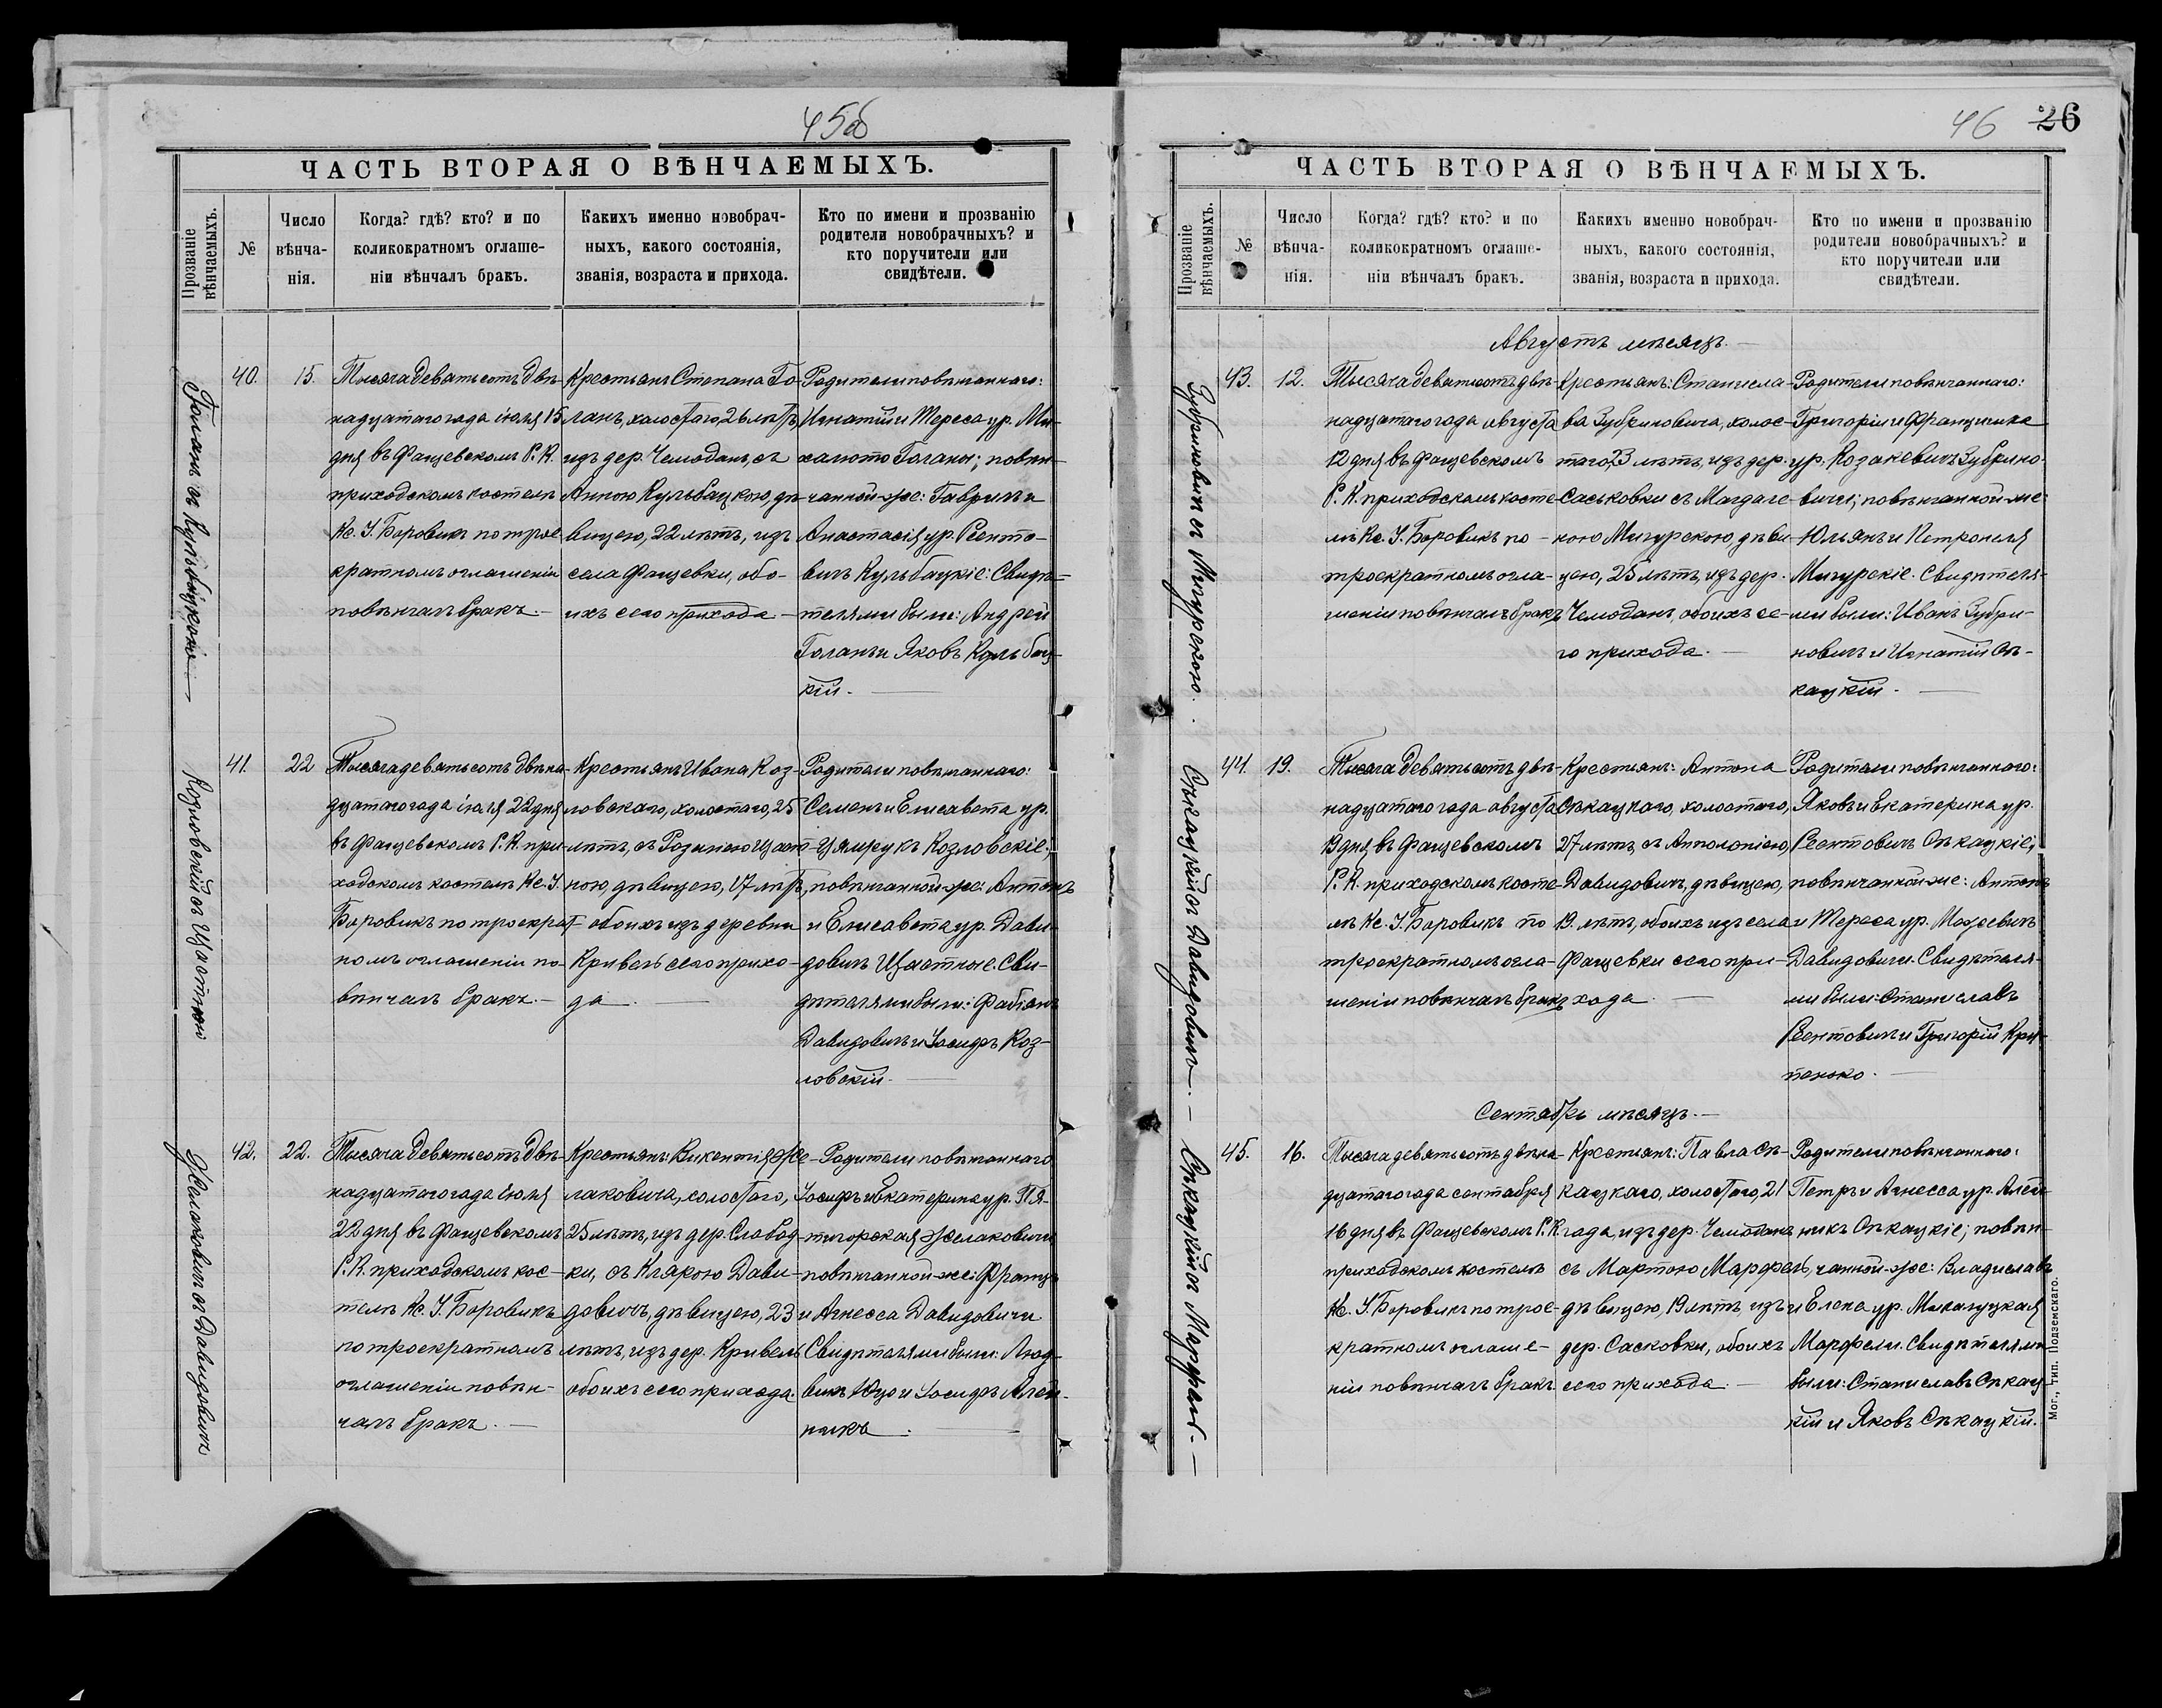 45об
ЧАСТЬ ВТОРАЯ О ВѢНЧАЕМЫХЪ.
Прозваніе вѣнчаемыхъ.
№
Число вѣнча-нія.
Когда? гдѣ? кто? и по
коликократномъ оглаше-
ніи вѣнчалъ бракъ.
Какихъ именно новобрач-
ныхъ, какого состоянія,
званія, возраста и прихода.
Кто по имени и прозванію
родители новобрачныхъ? и
кто поручители или
свидѣтели.
Голанъ съ Кульбацкою
40.
15.
Тысяча девятьсотъ двѣ-
надцатаго года іюля 15
дня въ Фащевскомъ Р. К.
приходскомъ костелѣ
Кс. І. Боровикъ по трое
кратномъ оглашеніи
повѣнчалъ бракъ.
Крестьянъ Степана Го
ланъ, холостаго, 26 лѣтъ,
изъ дер. Чемоданъ, съ
Анною Кульбацкою, дѣ-
вицею, 22 лѣтъ, изъ
села Фащевки, обо-
ихъ сего прихода.
Родители повѣнчаннаго:
Игнатій и Тереса ур. Ми-
халюто Голаны; повѣн-
чанной-же: Гавріилъ и
Анастасія ур. Реенто-
вичъ Кульбацкіе: Свидѣ-
телями были: Андрей
Голанъ и Яковъ Кульбац-
кій.
Козловскій съ Щастною
41.
22
Тысяча девятьсотъ двѣна-
дцатаго года іюля 22 дня
въ Фащевскомъ Р. К. при-
ходскомъ костелѣ Кс. І.
Боровикъ по троекрат-
номъ оглашеніи по-
вѣнчалъ бракъ.
Крестьянъ Ивана Коз-
ловскаго, холостаго, 25
лѣтъ, съ Розаліею Щаст-
ною, дѣвицею, 17 лѣтъ,
обоихъ изъ деревни
Кривель сего прихо-
да.
Родители повѣнчаннаго:
Семенъ и Елисавета ур.
Цямрукъ Козловскіе;
повѣнчанной-же: Антонъ
и Елисавета ур. Дави-
довичъ Щастные. Сви-
дѣтелями были: Фабіанъ
Давидовичъ и Іосифъ Коз-
ловскій.
Желаковичъ съ Давидовичъ
42.
22.
Тысяча девятьсотъ двѣ-
надцатаго года іюля
22 дня въ Фащевскомъ
Р. К. приходскомъ кос-
телѣ Кс. І. Боровикъ
по троекратномъ
оглашеніи повѣн-
чалъ бракъ.
Крестьянъ: Викентія Же-
лаковича, холостаго,
25 лѣтъ, изъ дер. Слобод-
ки, съ Клярою Дави-
довичъ, дѣвицею, 23
лѣтъ, изъ дер. Кривель
обоихъ сего прихода.
Родители повѣнчаннаго
Іосифъ и Екатерина ур. Пя-
тигорская Желаковичи
повѣнчанной-же: Францъ
и Агнесса Давидовичи
Свидѣтелями были: Люд-
викъ Юцо и Іосифъ Алей-
никъ.
46 26
ЧАСТЬ ВТОРАЯ О ВѢНЧАЕМЫХЪ.
Прозваніе вѣнчаемыхъ.
№
Число вѣнча-нія.
Когда? гдѣ? кто? и по
коликократномъ оглаше-
ніи вѣнчалъ бракъ.
Какихъ именно новобрач-
ныхъ, какого состоянія,
званія, возраста и прихода.
Кто по имени и прозванію
родители новобрачныхъ? и
кто поручители или
свидѣтели.
Августъ мѣсяцъ.
Зубриновичъ съ Мигурскою.
43.
12.
Тысяча девятьсотъ двѣ-
надцатаго года августа
12 дня въ Фащевскомъ
Р. К. приходскомъ косте
лѣ Кс. І. Боровикъ по
троекратномъ огла-
шеніи повѣнчалъ бракъ
Крестьянъ: Станисла-
ва Зубриновича, холос-
таго, 23 лѣтъ, изъ дер.
Саськовки съ Магдале
ною Мигурскою, дѣви
цею, 25 лѣтъ, изъ дер.
Чемоданъ, обоихъ се-
го прихода.
Родители повѣнчаннаго:
Григорій и Францишка
ур. Козакевичъ Зубрино-
вичи; повѣнчанной-же:
Юльянъ и Петронеля
Мигурскіе. Свидѣтеля-
ми были: Иванъ Зубри-
новичъ и Игнатій Сѣ-
кацкій.
Сѣкацкій съ Давидовичъ.
44.
19.
Тысяча девятьсотъ двѣ-
надцатаго года августа
19 дня, въ Фащевскомъ
Р. К. приходскомъ косте-
лѣ Кс. І. Боровикъ по
троекратномъ огла-
шеніи повѣнчалъ бракъ
Крестьянъ: Антона
Сѣкацкаго, холостаго,
27 лѣтъ, съ Апполоніею
Давидовичъ, дѣвицею,
19 лѣтъ, обоихъ изъ села
Фащевки сего при-
хода.
Родители повѣнчаннаго:
Яковъ и Екатерина ур.
Реентовичъ Сѣкацкіе;
повѣнчанной-же: Антонъ
и Тереса ур. Мацкевичъ
Давидовичи. Свидѣтеля-
ми были: Станиславъ
Реентовичъ и Григорій Кри-
тенько.
Сентябрь мѣсяцъ.
Сѣкацкій съ Марфель.
45.
16.
Тысяча девятьсотъ двѣна-
дцатаго года сентября
16 дня въ Фащевскомъ Р. К.
приходскомъ костелѣ
Кс. І. Боровикъ по трое-
кратномъ оглаше-
ніи повѣнчалъ бракъ
Крестьянъ: Павла Сѣ-
кацкаго, холостаго, 21
года, изъ дер. Чемоданъ
съ Мартою Марфель,
дѣвицею, 19 лѣтъ изъ
дер. Сасковки, обоихъ
сего прихода.
Родители повѣнчаннаго:
Петръ и Агнесса ур. Алей-
никъ Сѣкацкіе; повѣн-
чанной-же: Владиславъ
и Елена ур. Микагуцкая
Марфели. Свидѣтелями
были: Станиславъ Сѣкац
кій и Яковъ Сѣкацкій.
Мог., тип. Подземскаго.